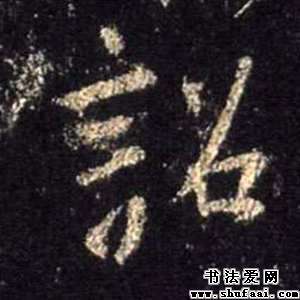 詔
书法爱网
www.shufaai.com